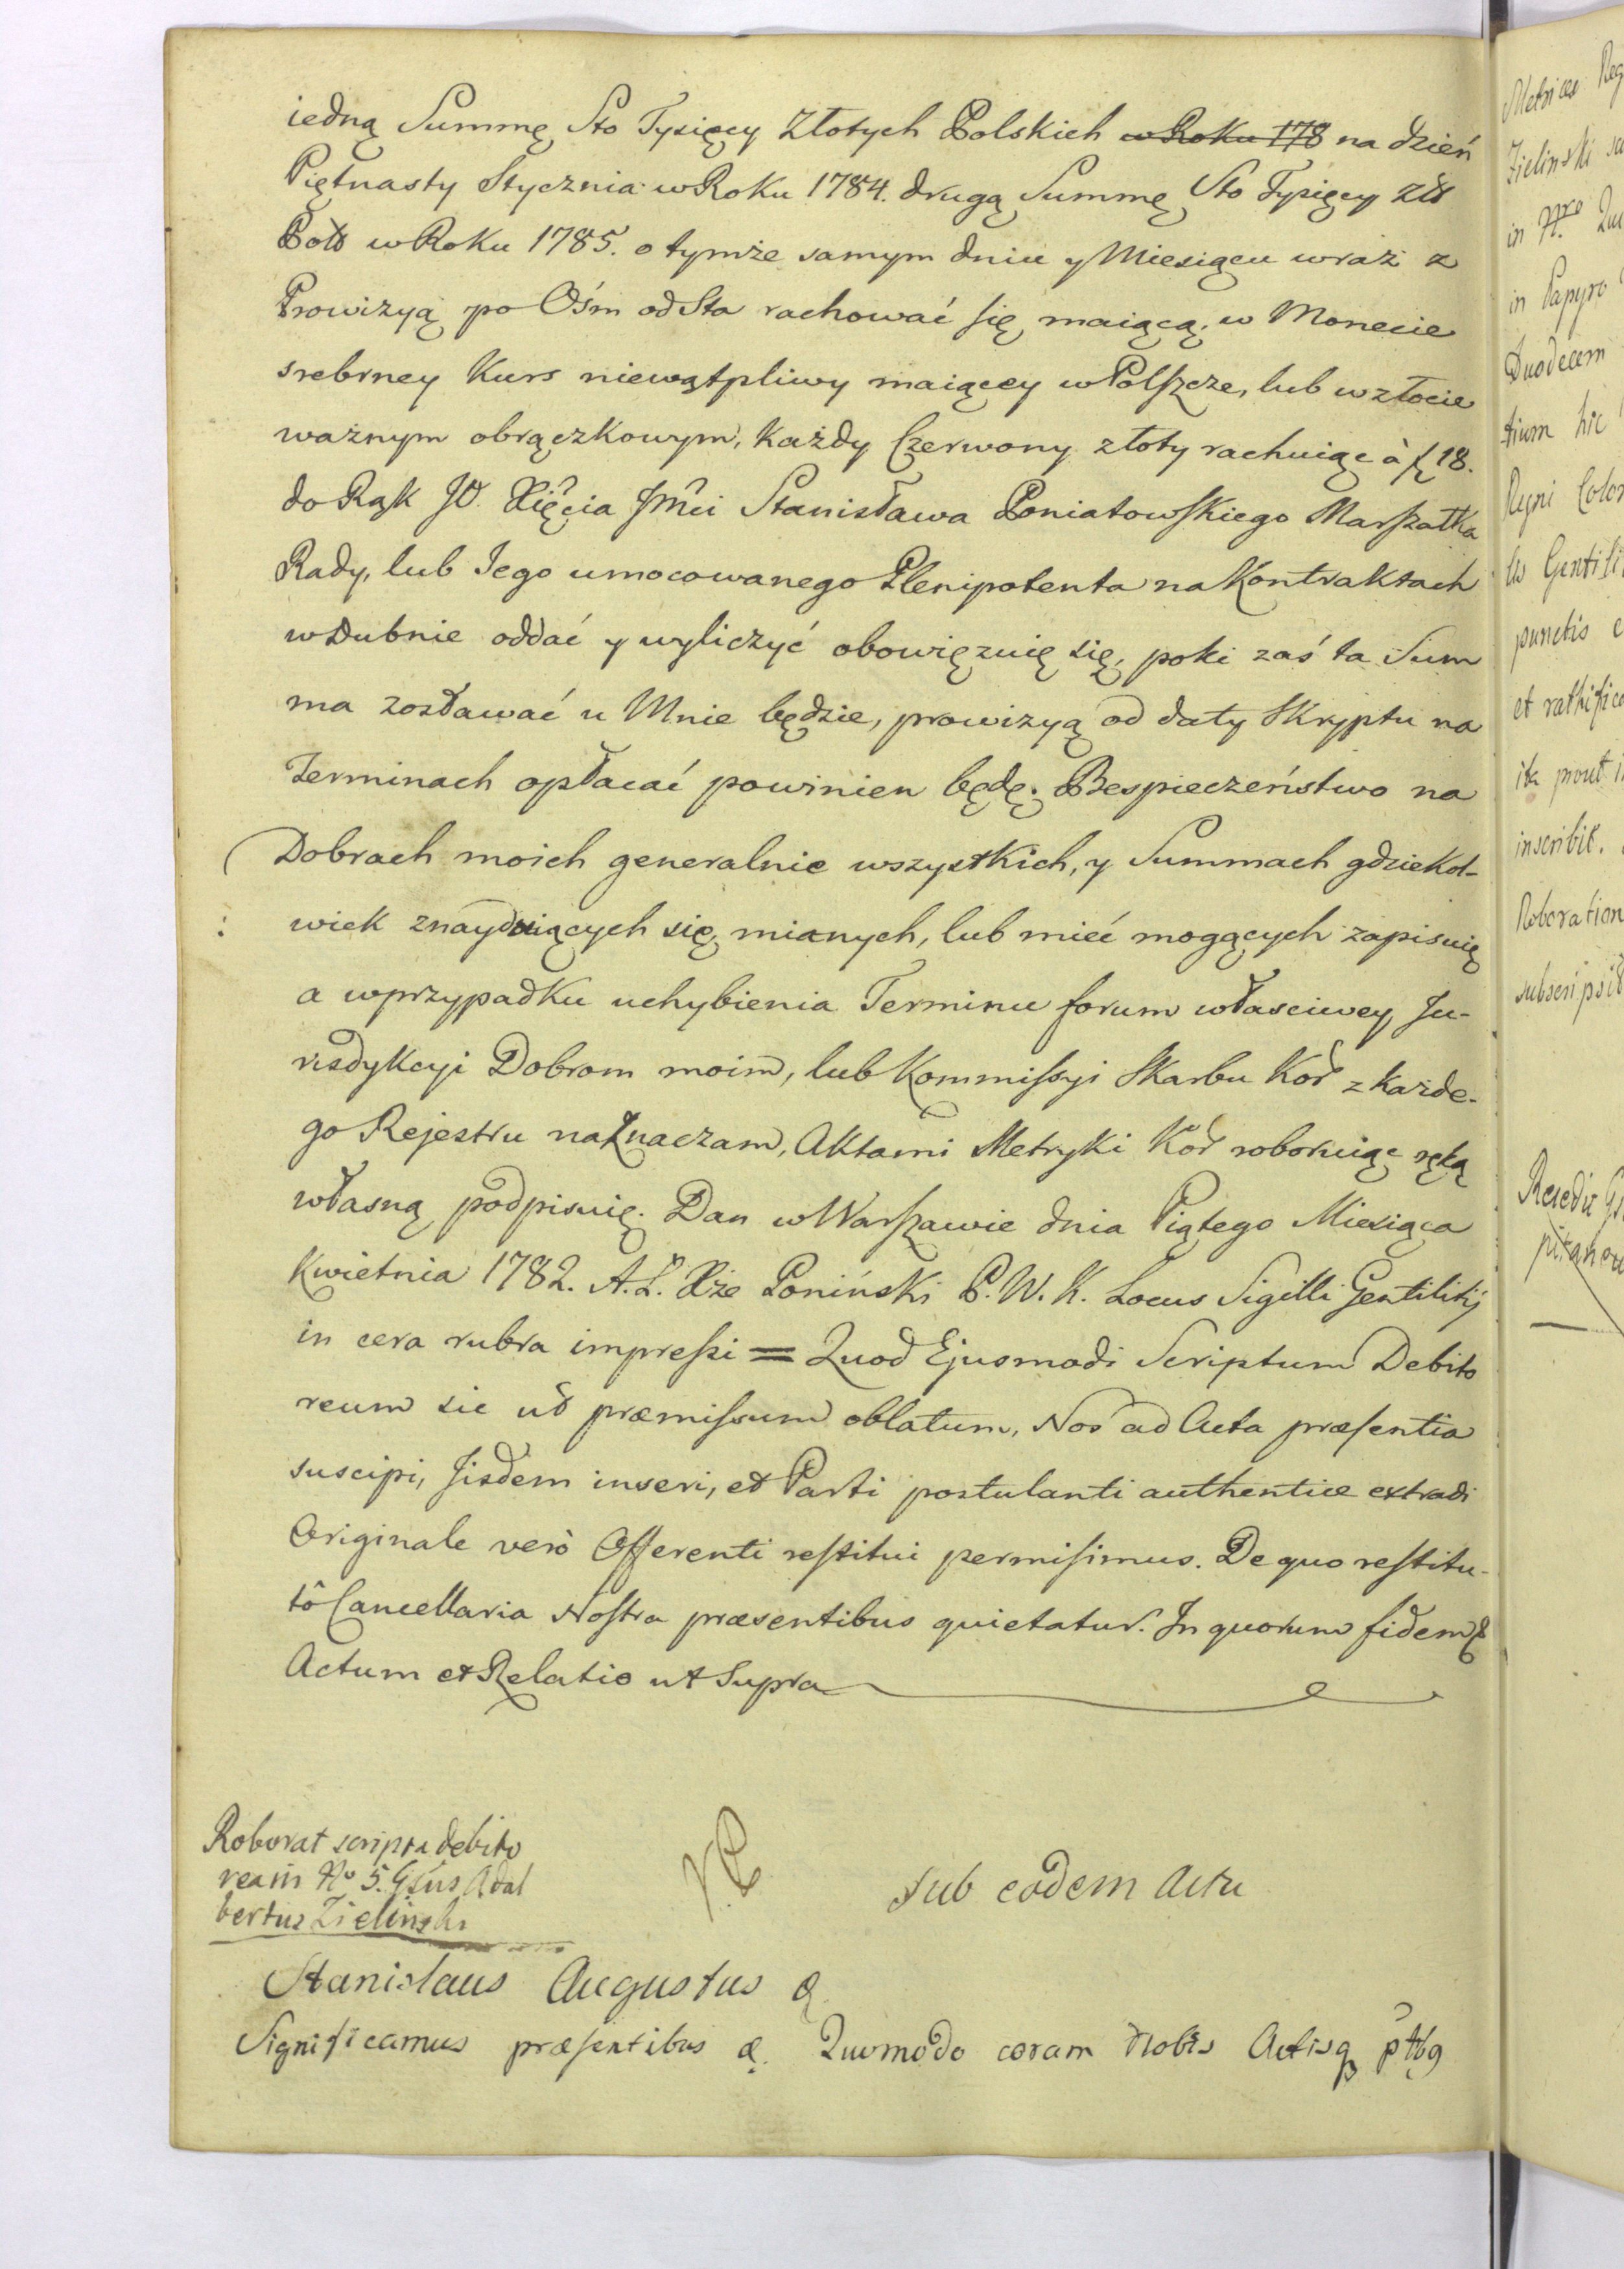 iedną Summę Sto Tysięcy Złotych Polskich w Roku 178 na dzień
Piętnasty Stycznia w Roku 1784. drugą Summę Sto Tysięcy Zlt
Polt w Roku 1785. o tymże samym dniu y Miesiącu wraz z
Prowizyą po Ośm od Sta rachować się maiącą, w Monecie
srebrney Kurs niewątpliwy maiącey w Polszcze, lub w złocie
ważnym obrączkowym, Każdy Czerwony złoty rachuiąc à f 18.
do Rąk JO. Xięcia Jmci Stanisława Poniatowskiego Marszałka
Rady, lub Jego umocowanego Plenipotenta na Kontraktach
w Dubnie oddać y wyliczyć obowięzuię się, poki zaś ta Sum
ma zostawać u Mnie będzie, prowizyą od daty Skryptu na
Terminach opłacać powinien będę. Bespieczeństwo na
Dobrach moich generalnie wszystkich, y Summach gdziekol-
wiek znayduiących się, mianych, lub mieć mogących zapisuię
a w przypadku uchybienia Terminu forum właściwey Ju-
risdykcyi Dobrom moim, lub Kommissyi Skarbu Kor z każde-
go Rejestru naznaczam, Aktami Metryki Kor roboruiąc ręką
własną podpisuię. Dan w Warszawie dnia Piątego Miesiąca
Kwietnia 1782. A. Ł. Xże Poniński P. W. K. Locus Sigilli Gentilitij
in cera rubra impressi = Quod Ejusmodi Scriptum Debito
reum sic ut præmissum oblatum, Nos ad Acta præsentia
suscipi, Jisdem inseri, et Parti postulanti authentice extradi
Originale verò Offerenti restitui permisimus. De quo restitu-
tô Cancellaria Nostra præsentibus quietatur. In quorum fidem &
Actum et Relatio ut Supra
Roborat scriptu debito
reum No 5. Gsus Adal
bertus Zielinski
Sub eodem Actu
Stanislaus Augustus &
Significamus præsentibus &. Quomodo coram Nobis Actisq ptbg